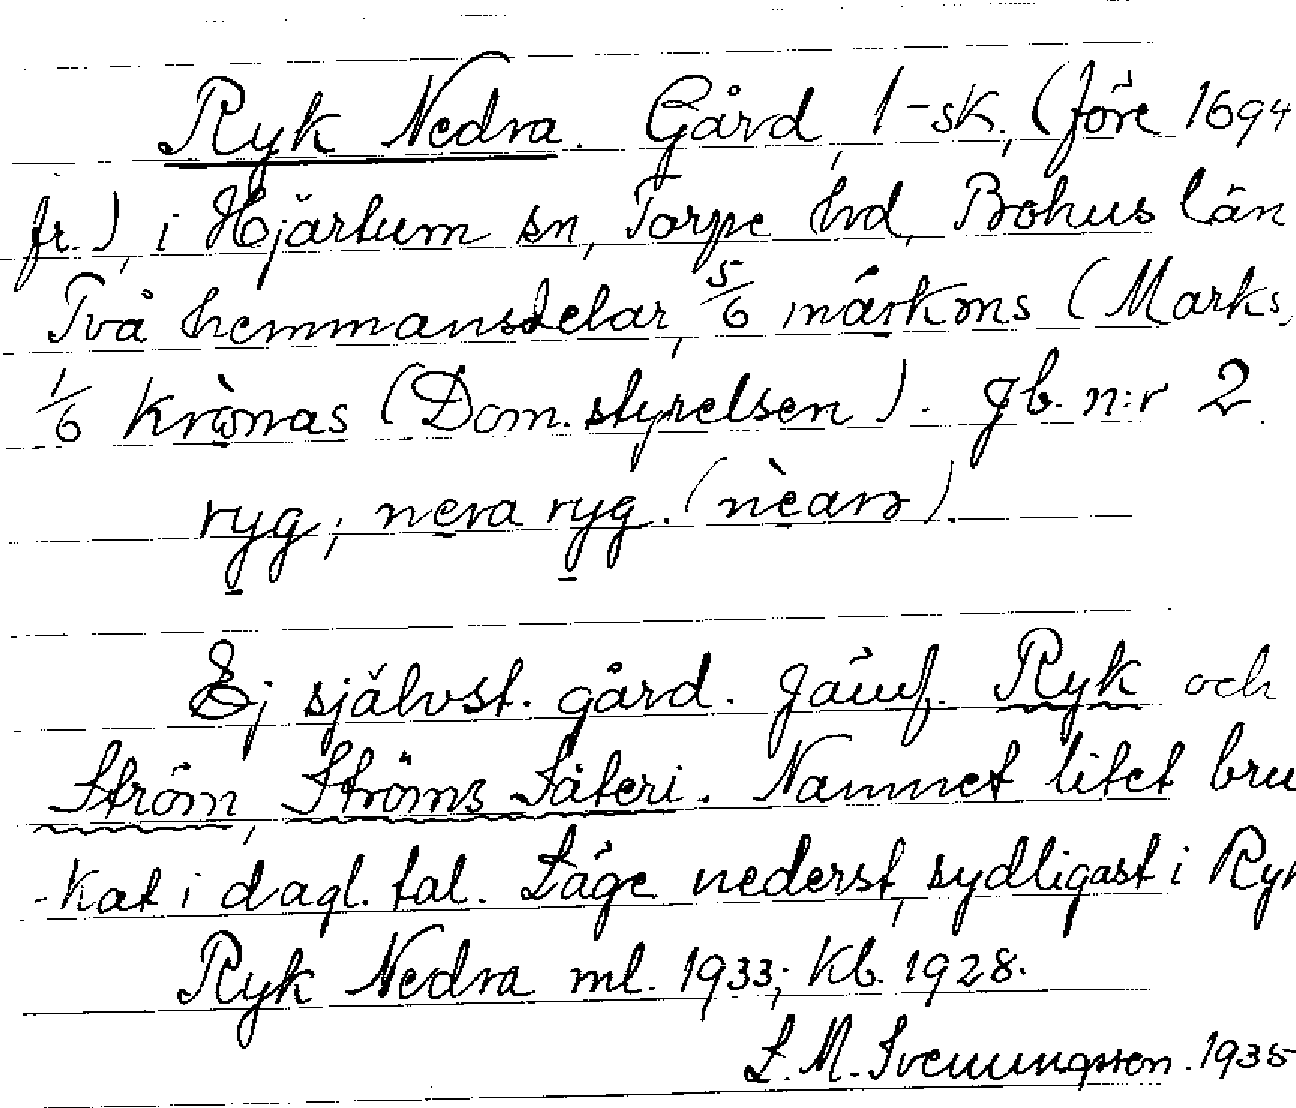 Ryk Nedra. Gård, 1-sk., (före 1694
fr.), i Hjärtum sn, Torpe hd, Bohus län
Två hemmansdelar, 5/6 märkms (Marks,
1/6 krònas (Dom.styrelsen). Jb. n:r 2.
ryg, nera ryg. (nèarɔ).
Ej självst. gård. Jämf. Ryk och
Ström, Ströms Säteri. Namnet litet bru
-kat i dagl. tal. Läge nederst, sydligast i Ryk
Ryk Nedra ml. 1933; Kb. 1928.
L. M. Svenungsson. 1935